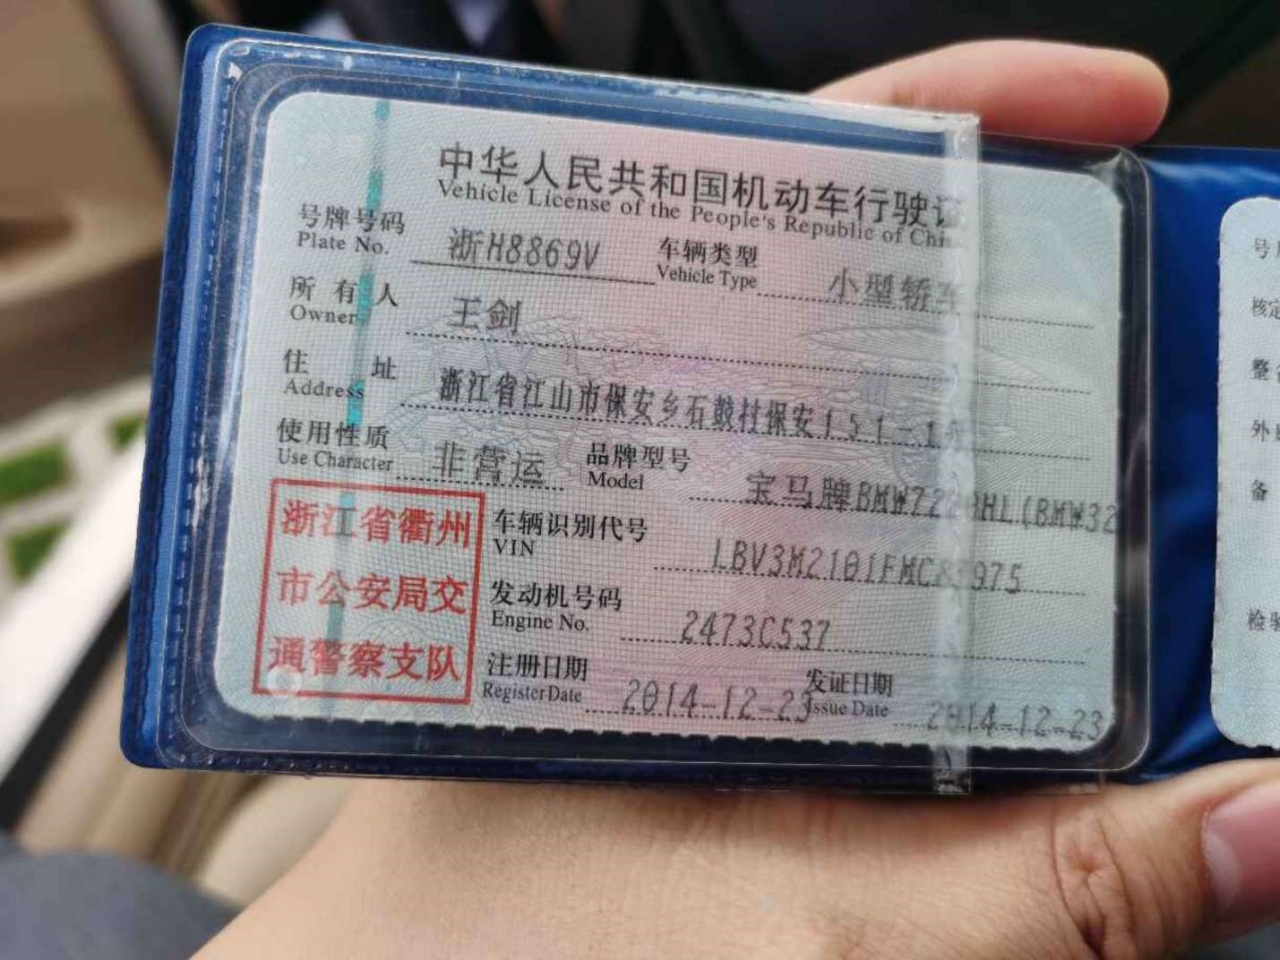 中华人民共和国机动车行驶证
Vehicle License of the People's Republic of Chin
号牌号码 浙H8869V 车辆类型 小型轿车
Plate No. Vehicle Type
所有人 王剑
Owner
住址 浙江省江山市保安乡石鼓村保安151-1
Address
使用性质 非营运 品牌型号 宝马牌BMW7220HL(BMW32
Use Character Model
浙江省衢州
市公安局交
通警察支队
车辆识别代号
VIN
发动机号码 2473C537
Engine No.
注册日期 2014-12-23 发证日期 2014-12-23
Register Date Issue Date
号
核定
整
外
备
检验